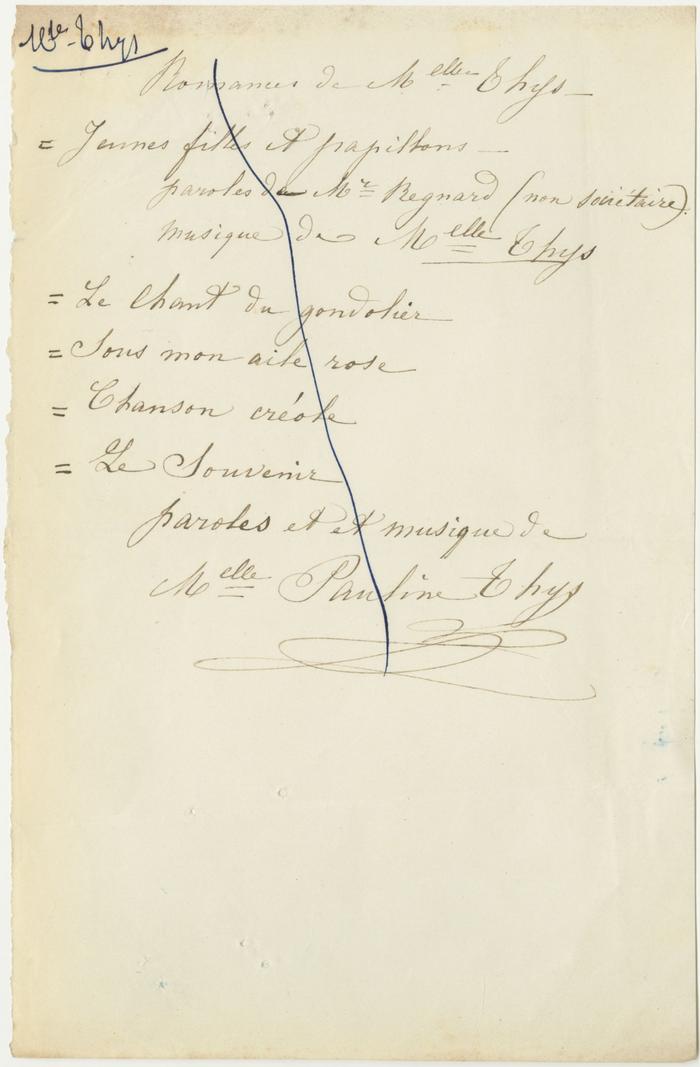 Mlle Thys
Romances de Melle Thys —
= Jeunes filles et papillons —
paroles de Mr Regnard (non sociétaire).
musique de Melle Thys
= Le Chant du gondolier
= Sous mon aile rose
= Chanson créole
= Le Souvenir
paroles et et musique de
Melle Pauline Thys